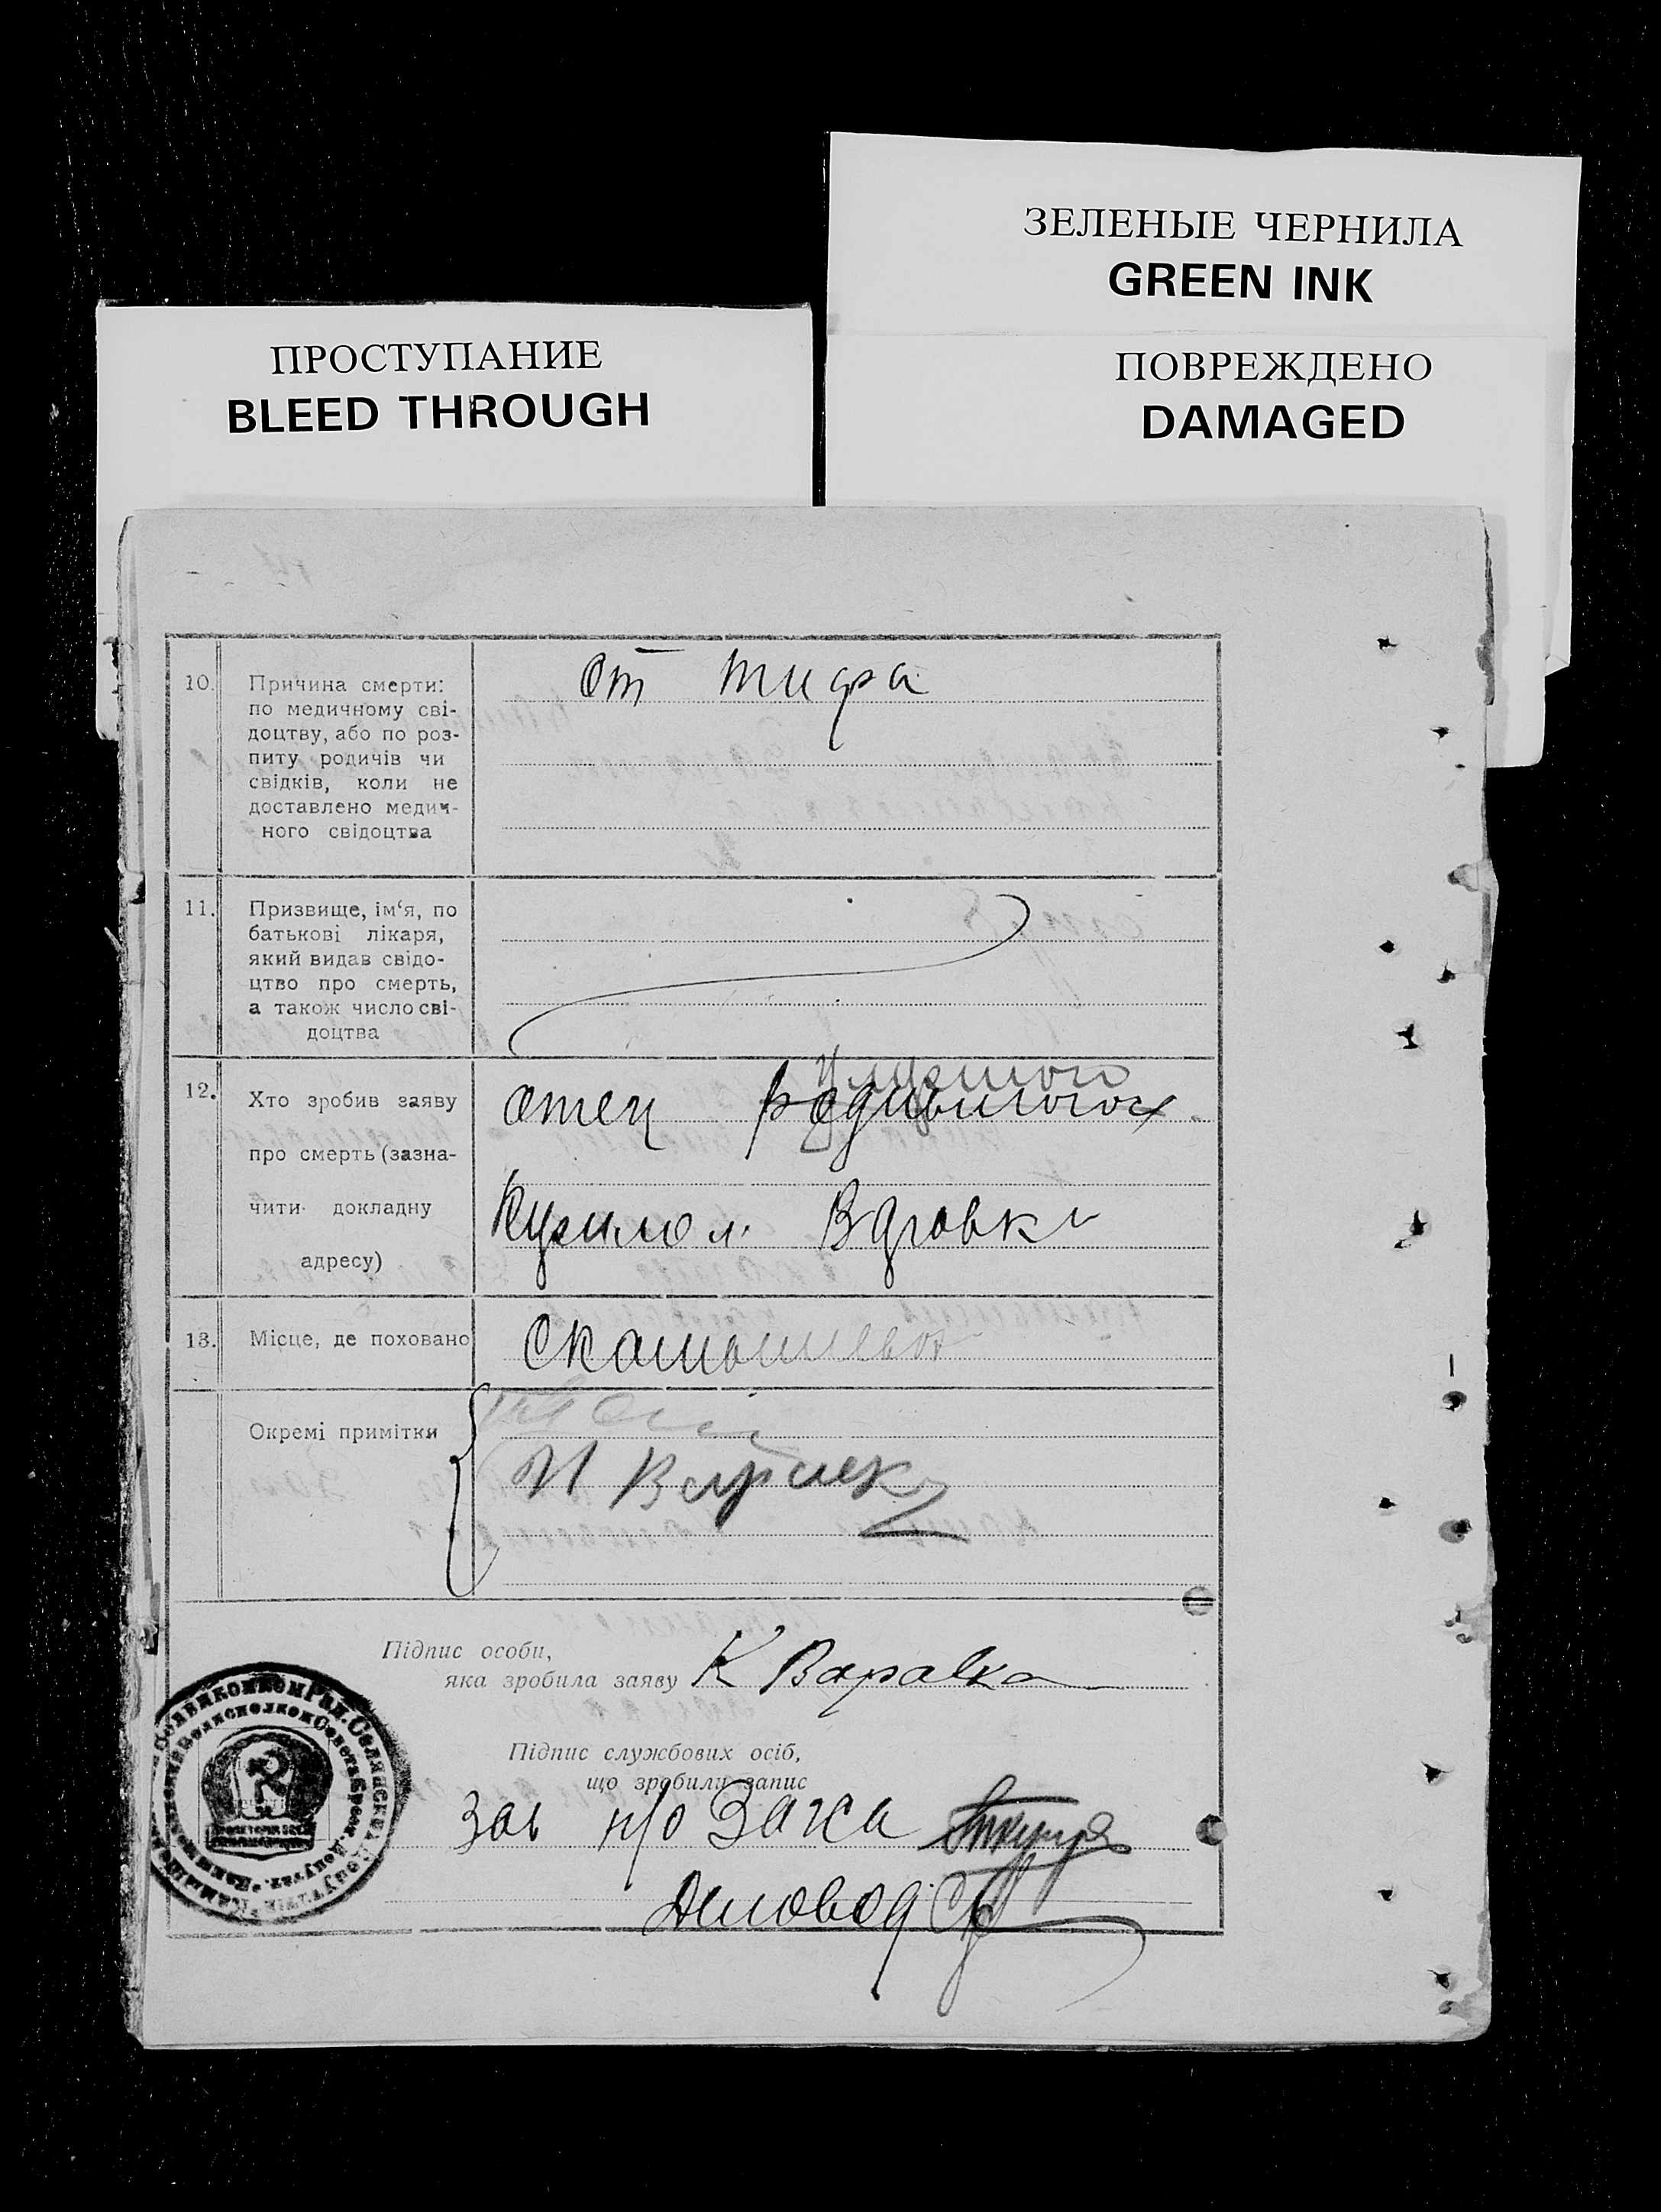 ЗЕЛЕНЫЕ ЧЕРНИЛА
GREEN INK
ПРОСТУПАНИЕ
BLEED THROUGH
ПОВРЕЖДЕНО
DAMAGED
10. Причина смерти:
по медичному сві-
доцтву, або по роз-
питу родичів чи
свідків, коли не
доставлено медич-
ного свідоцтва
от тифа
11. Призвище, ім‘я, по
батькові лікаря,
який видав свідо-
цтво про смерть,
а також число сві-
доцтва
12. Хто зробив заяву
про смерть (зазна-
чити докладну
адресу)
отец
13. Місце, де поховано
Окремі примітки
Підпис особи,
яка зробила заяву К Варавка
Підпис службових осіб,
що зробили запис
Зав п/о Загса
Деловод